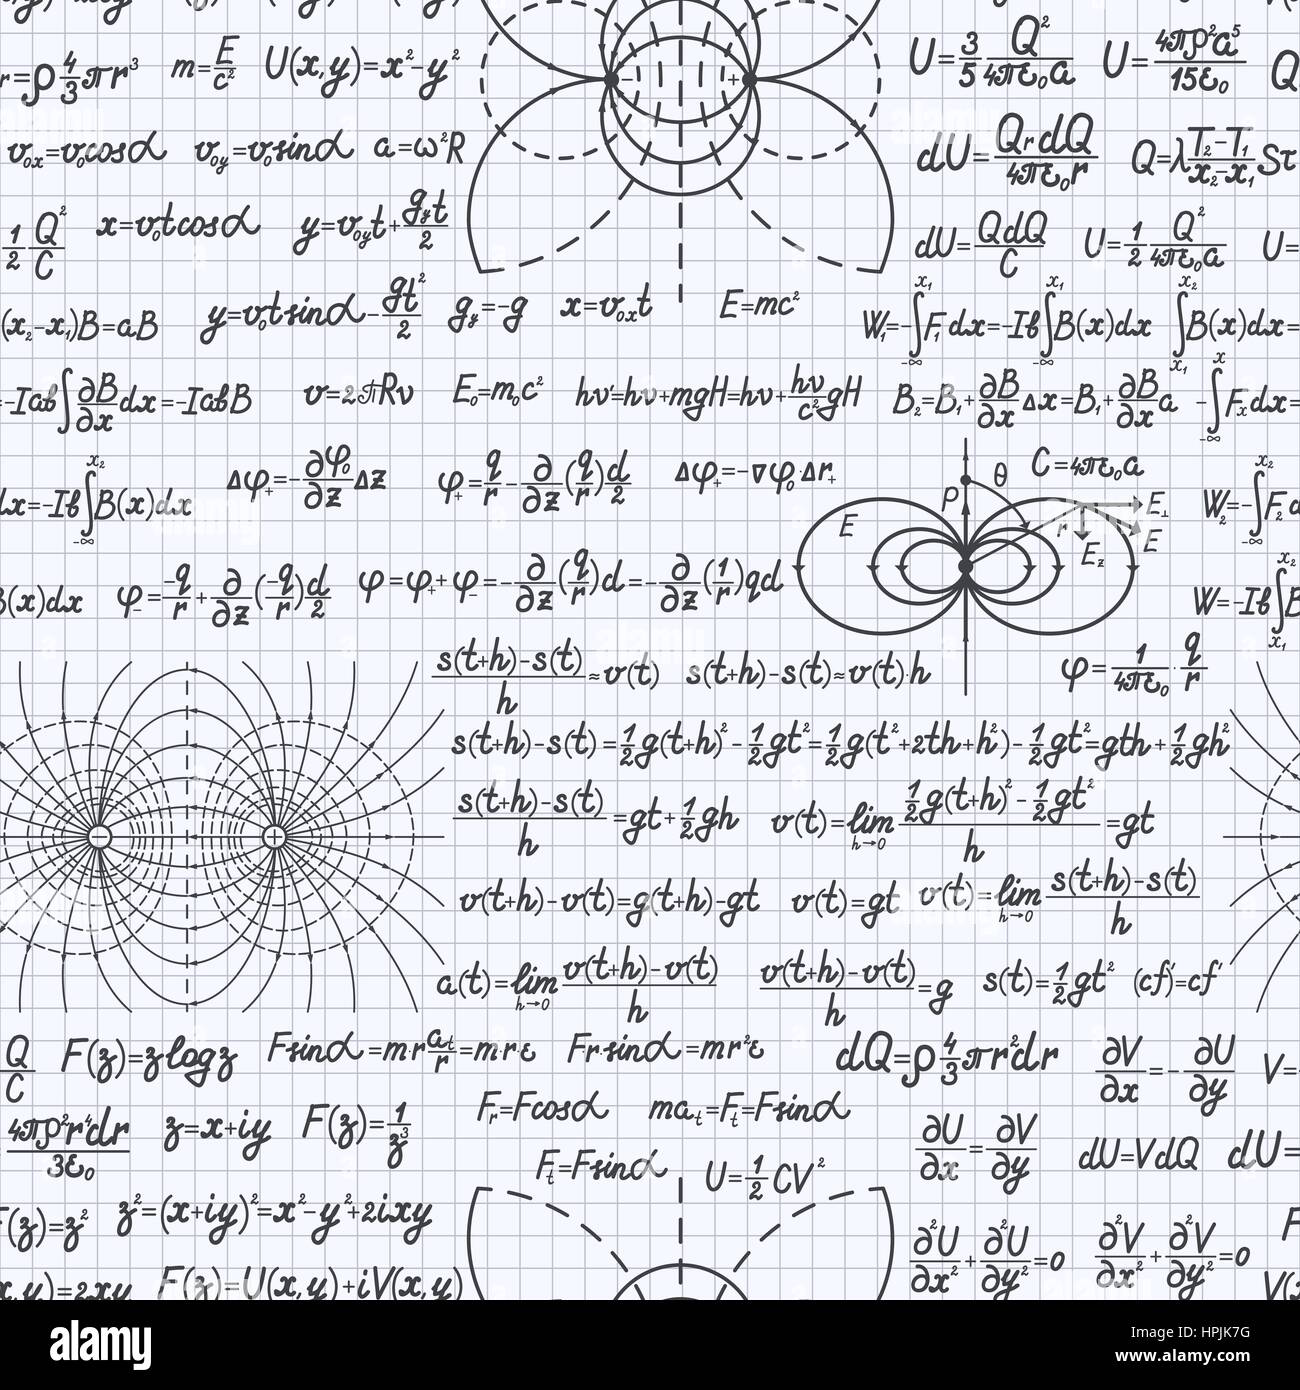 r=ρ 4/3 πr³   m=E/c²   U(x,y)=x²-y²   U=3/5 Q²/4πε₀a   U=4πρ²a⁵/15ε₀   Q
v₀ₓ=v₀cosα   v₀ᵧ=v₀sinα   a=ω²R   dU=QᵣdQ/4πε₀r   Q=λ(T₂-T₁)/(x₂-x₁) Sτ
1/2 Q²/C   x=v₀tcosα   y=v₀ᵧt+gᵧt/2   dU=QdQ/C   U=1/2 Q²/4πε₀a   U=
(x₂-x₁)B=aB   y=v₀tsinα-gt²/2   gᵧ=-g   x=v₀ₓt   E=mc²   W₁=-∫_{-∞}^{x₁}F₁dx=-Ib∫_{-∞}^{x₁}B(x)dx   ∫_{x₁}^{x₂}B(x)dx=
=-Iab∫∂B/∂x dx=-IabB   v=2πRν   E₀=m₀c²   hν'=hν+mgH=hν+hν/c² gH   B₂=B₁+∂B/∂x Δx=B₁+∂B/∂x a   -∫_{-∞}^{x}Fₓdx=
dx=-Ib∫_{-∞}^{x₂}B(x)dx   Δφ₊=-∂φ₀/∂z Δz   φ₊=q/r-∂/∂z(q/r)d/2   Δφ₊=-∇φ₀·Δr₊   C=4πε₀a   W₂=-∫_{-∞}^{x₂}F₂
E   P   θ   r   E⊥   E   E_z
B(x)dx   φ₋=-q/r+∂/∂z(-q/r)d/2   φ=φ₊+φ₋=-∂/∂z(q/r)d=-∂/∂z(1/r)qd   W=-Ib∫_{x₁}^{x₂}B
(s(t+h)-s(t))/h≈v(t)   s(t+h)-s(t)≈v(t)·h   φ=1/4πε₀·q/r
s(t+h)-s(t)=1/2g(t+h)²-1/2gt²=1/2g(t²+2th+h²)-1/2gt²=gth+1/2gh²
(s(t+h)-s(t))/h=gt+1/2gh   v(t)=lim_{h→0}(1/2g(t+h)²-1/2gt²)/h=gt
v(t+h)-v(t)=g(t+h)-gt   v(t)=gt   v(t)=lim_{h→0}(s(t+h)-s(t))/h
a(t)=lim_{h→0}(v(t+h)-v(t))/h   (v(t+h)-v(t))/h=g   s(t)=1/2gt²   (cf)'=cf'
Q/C   F(z)=zlogz   Fsinα=m·r aₜ/r=m·r·ε   Fr·sinα=mr²ε   dQ=ρ 4/3 πr²dr   ∂V/∂x=-∂U/∂y   V=
4πρ²r⁴dr/3ε₀   z=x+iy   F(z)=1/z³   Fᵣ=Fcosα   maₜ=Fₜ=Fsinα   ∂U/∂x=∂V/∂y   dU=VdQ   dU=
Fₜ=Fsinα   U=1/2 CV²
F(z)=z²   z²=(x+iy)²=x²-y²+2ixy   ∂²U/∂x²+∂²U/∂y²=0   ∂²V/∂x²+∂²V/∂y²=0
(x,y)=2xy   F(z)=U(x,y)+iV(x,y)   V(x
alamy
Image ID: HPJK7G
www.alamy.com